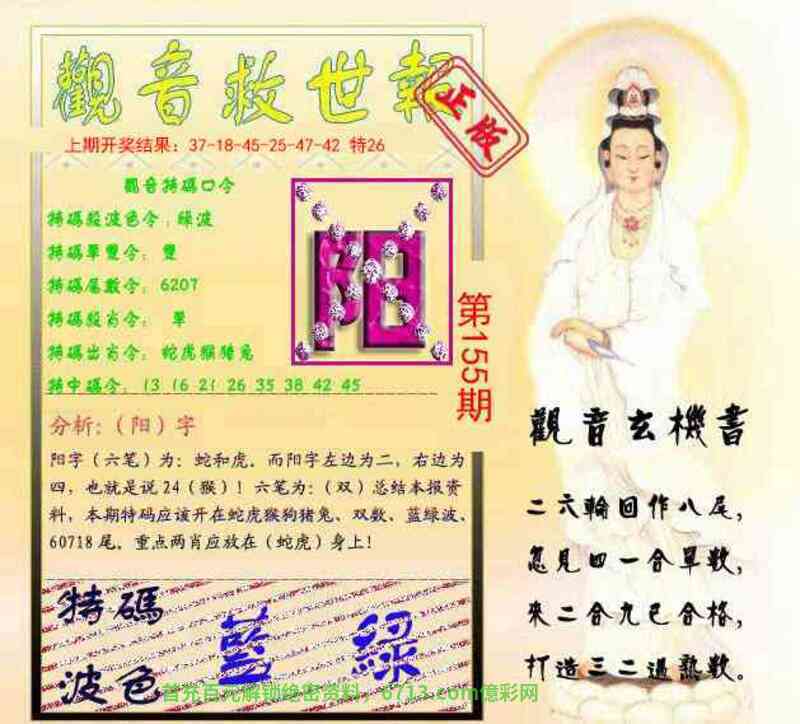 觀音救世報
正版
上期开奖结果：37-18-45-25-47-42 特26
觀音特碼口令
特碼殺波色令：綠波
特碼單雙令：雙
特碼尾數令：6207
特碼殺肖令：單
特碼出肖令：蛇虎猴猪兔
特中碼令：13 16 21 26 35 38 42 45
阳
第155期
分析:（阳）字
阳字（六笔）为：蛇和虎．而阳字左边为二，右边为
四，也就是说24（猴）！六笔为:（双）总结本报资
料，本期特码应该开在蛇虎猴狗猪兔、双数、蓝绿波、
60718尾．重点两肖应放在（蛇虎）身上！
特碼
波色
藍 綠
首充百元解锁绝密资料，6713.com億彩网
觀音玄機書
二六輪回作八尾，
忽見四一合單数，
來二合九已合格，
打造三二過熟数。